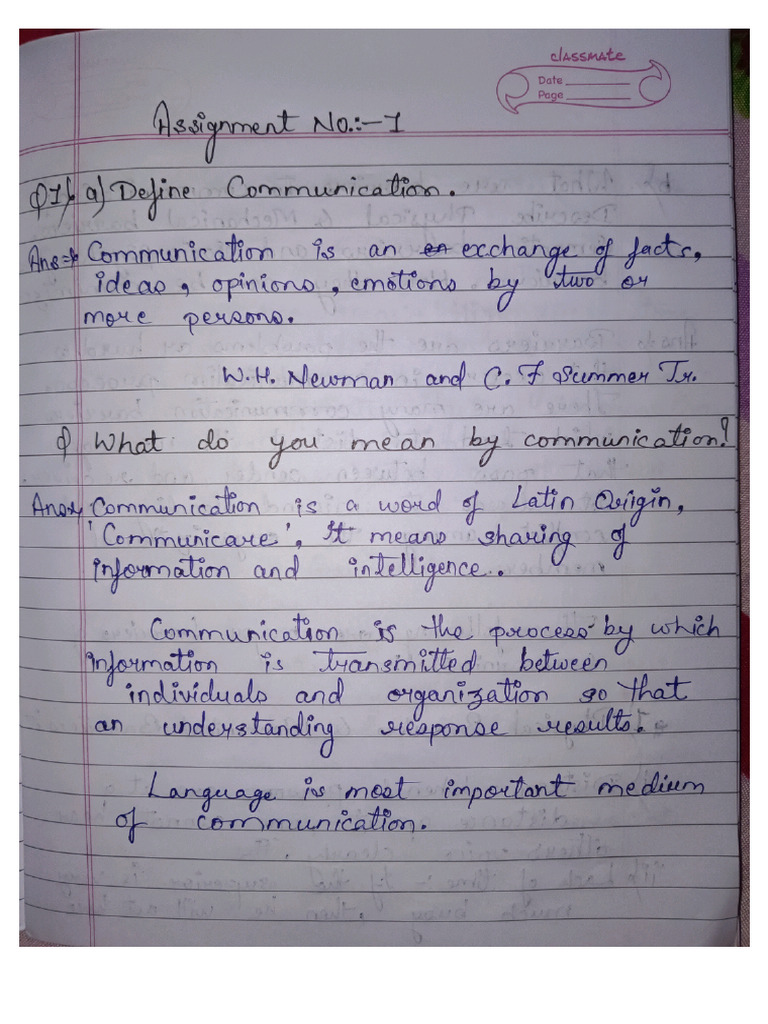 classmate
Date
Page
Assignment No.:-1
Q1) a) Define Communication.
Ans=> Communication is an exchange of facts,
ideas, opinions, emotions by two or
more persons.
W.H. Newman and C. F Summer Jr.
Q What do you mean by communication?
Ans> Communication is a word of Latin Origin,
'Communicare', It means sharing of
information and intelligence.
Communication is the process by which
information is transmitted between
individuals and organization so that
an understanding response results.
Language is most important medium
of communication.